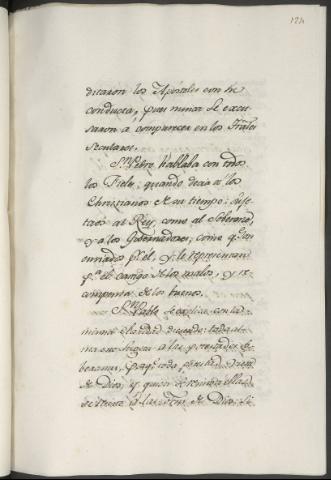 124
dicaron los Apóstoles con su
conducta, pues nunca se excu-
saron a comparecer en los Trales
Seculares.
Sn. Pedro hablaba con todos
los Fieles, quando decia a los
Christianos de su tiempo: suje-
taos al Rey, como al Soberano,
y a los Gobernadores, como qe. son
enviados pr. el, y le representan
pa. el castigo de los malos, y re-
compensa de los buenos.
Sn. Pablo se explica con la
misma claridad diciendo: toda al-
ma este sugeta a las potestades So-
beranas, pr. qe. toda potestad viene
de Dios, y quien
a las de Dios.